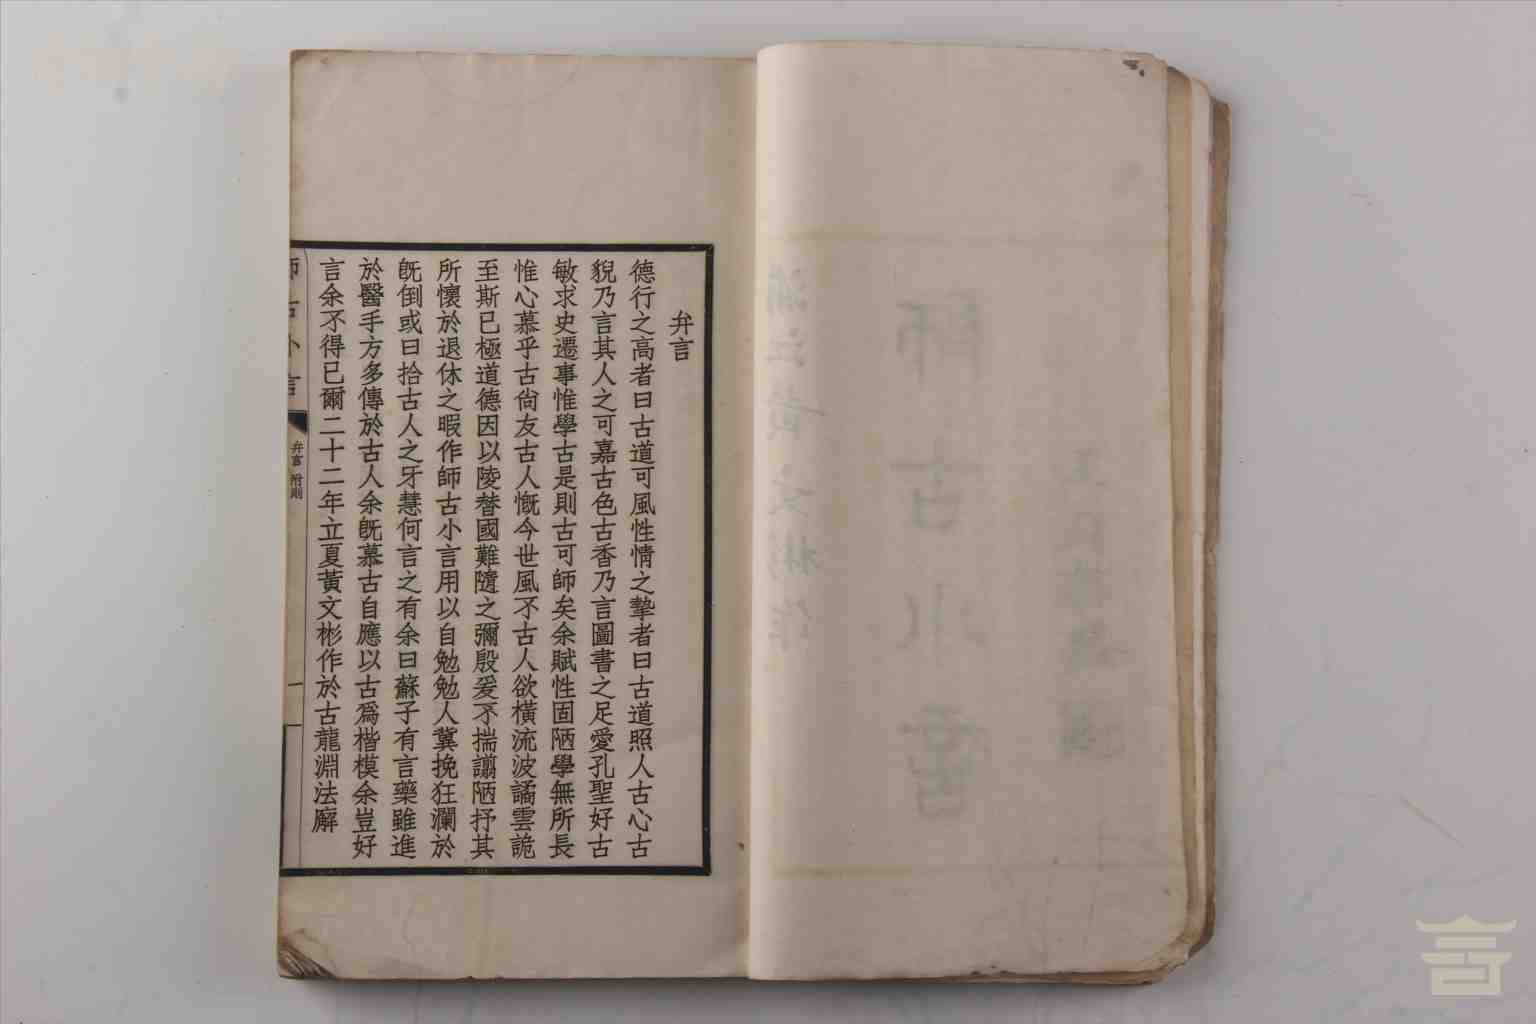 弁言
德行之高者曰古道可風性情之摯者曰古道照人古心古
貌乃言其人之可嘉古色古香乃言圖書之足愛孔聖好古
敏求史遷事惟學古是則古可師矣余賦性固陋學無所長
惟心慕乎古尙友古人慨今世風不古人欲橫流波譎雲詭
至斯已極道德因以陵替國難隨之彌殷爰不揣譾陋抒其
所懷於退休之暇作師古小言用以自勉勉人冀挽狂瀾於
旣倒或曰拾古人之牙慧何言之有余曰蘇子有言藥雖進
於醫手方多傳於古人余旣慕古自應以古爲楷模余豈好
言余不得已爾二十二年立夏黃文彬作於古龍淵法廨
師古小言
弁言 附則
一
師古小言
浦江黃文彬作